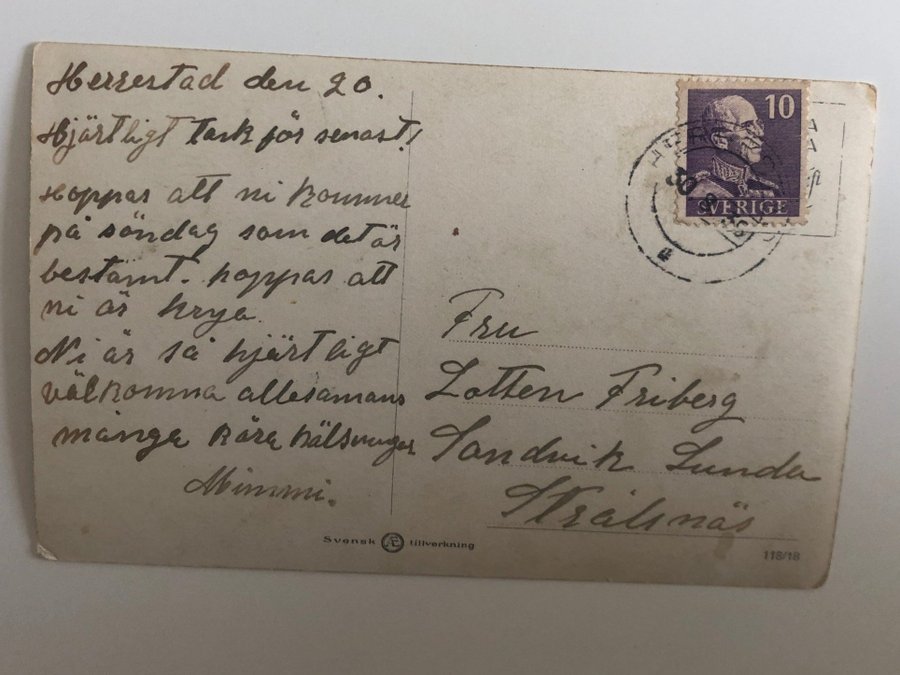 Herrestad den 20.
Hjärtligt tack för senast!
Hoppas att ni kommer
på söndag som det är
bestämt. hoppas att
ni är krya.
Ni är så hjärtligt
välkomna allesamans
många kära hälsningar
Mimmi.
10
SVERIGE
Fru
Lotten Friberg
Sandvik Sunda
Strålsnäs
Svensk tillverkning
118/18